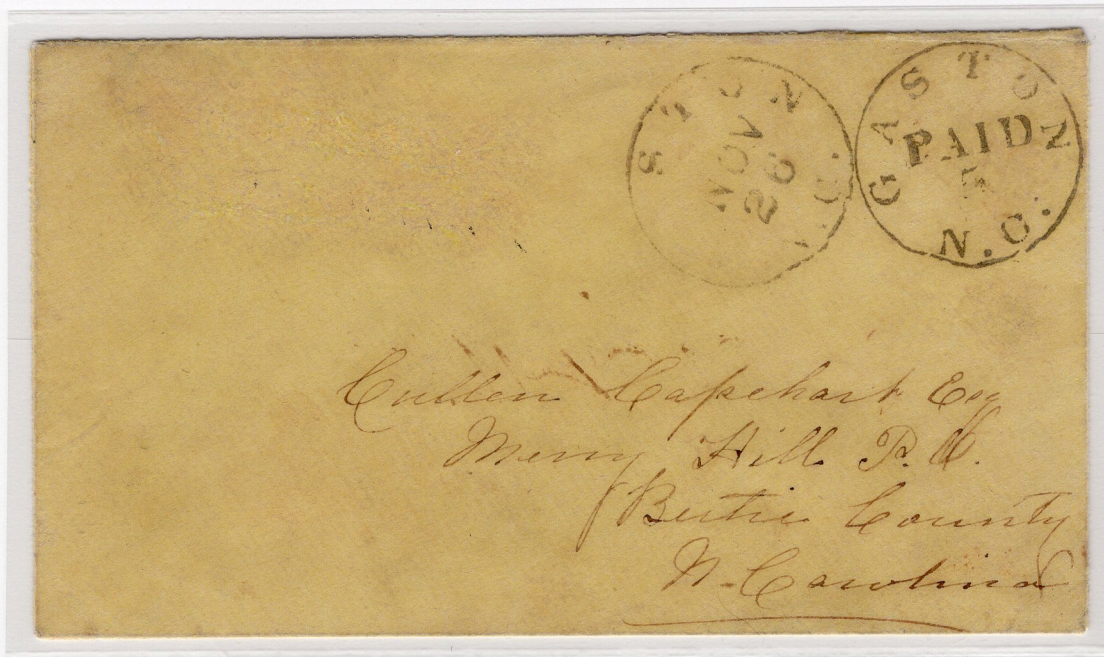 STON N.C.
NOV
26
GASTON N.C.
PAID
Cullen Capehart Esq
Merry Hill P. O.
Bertie County
N. Carolina